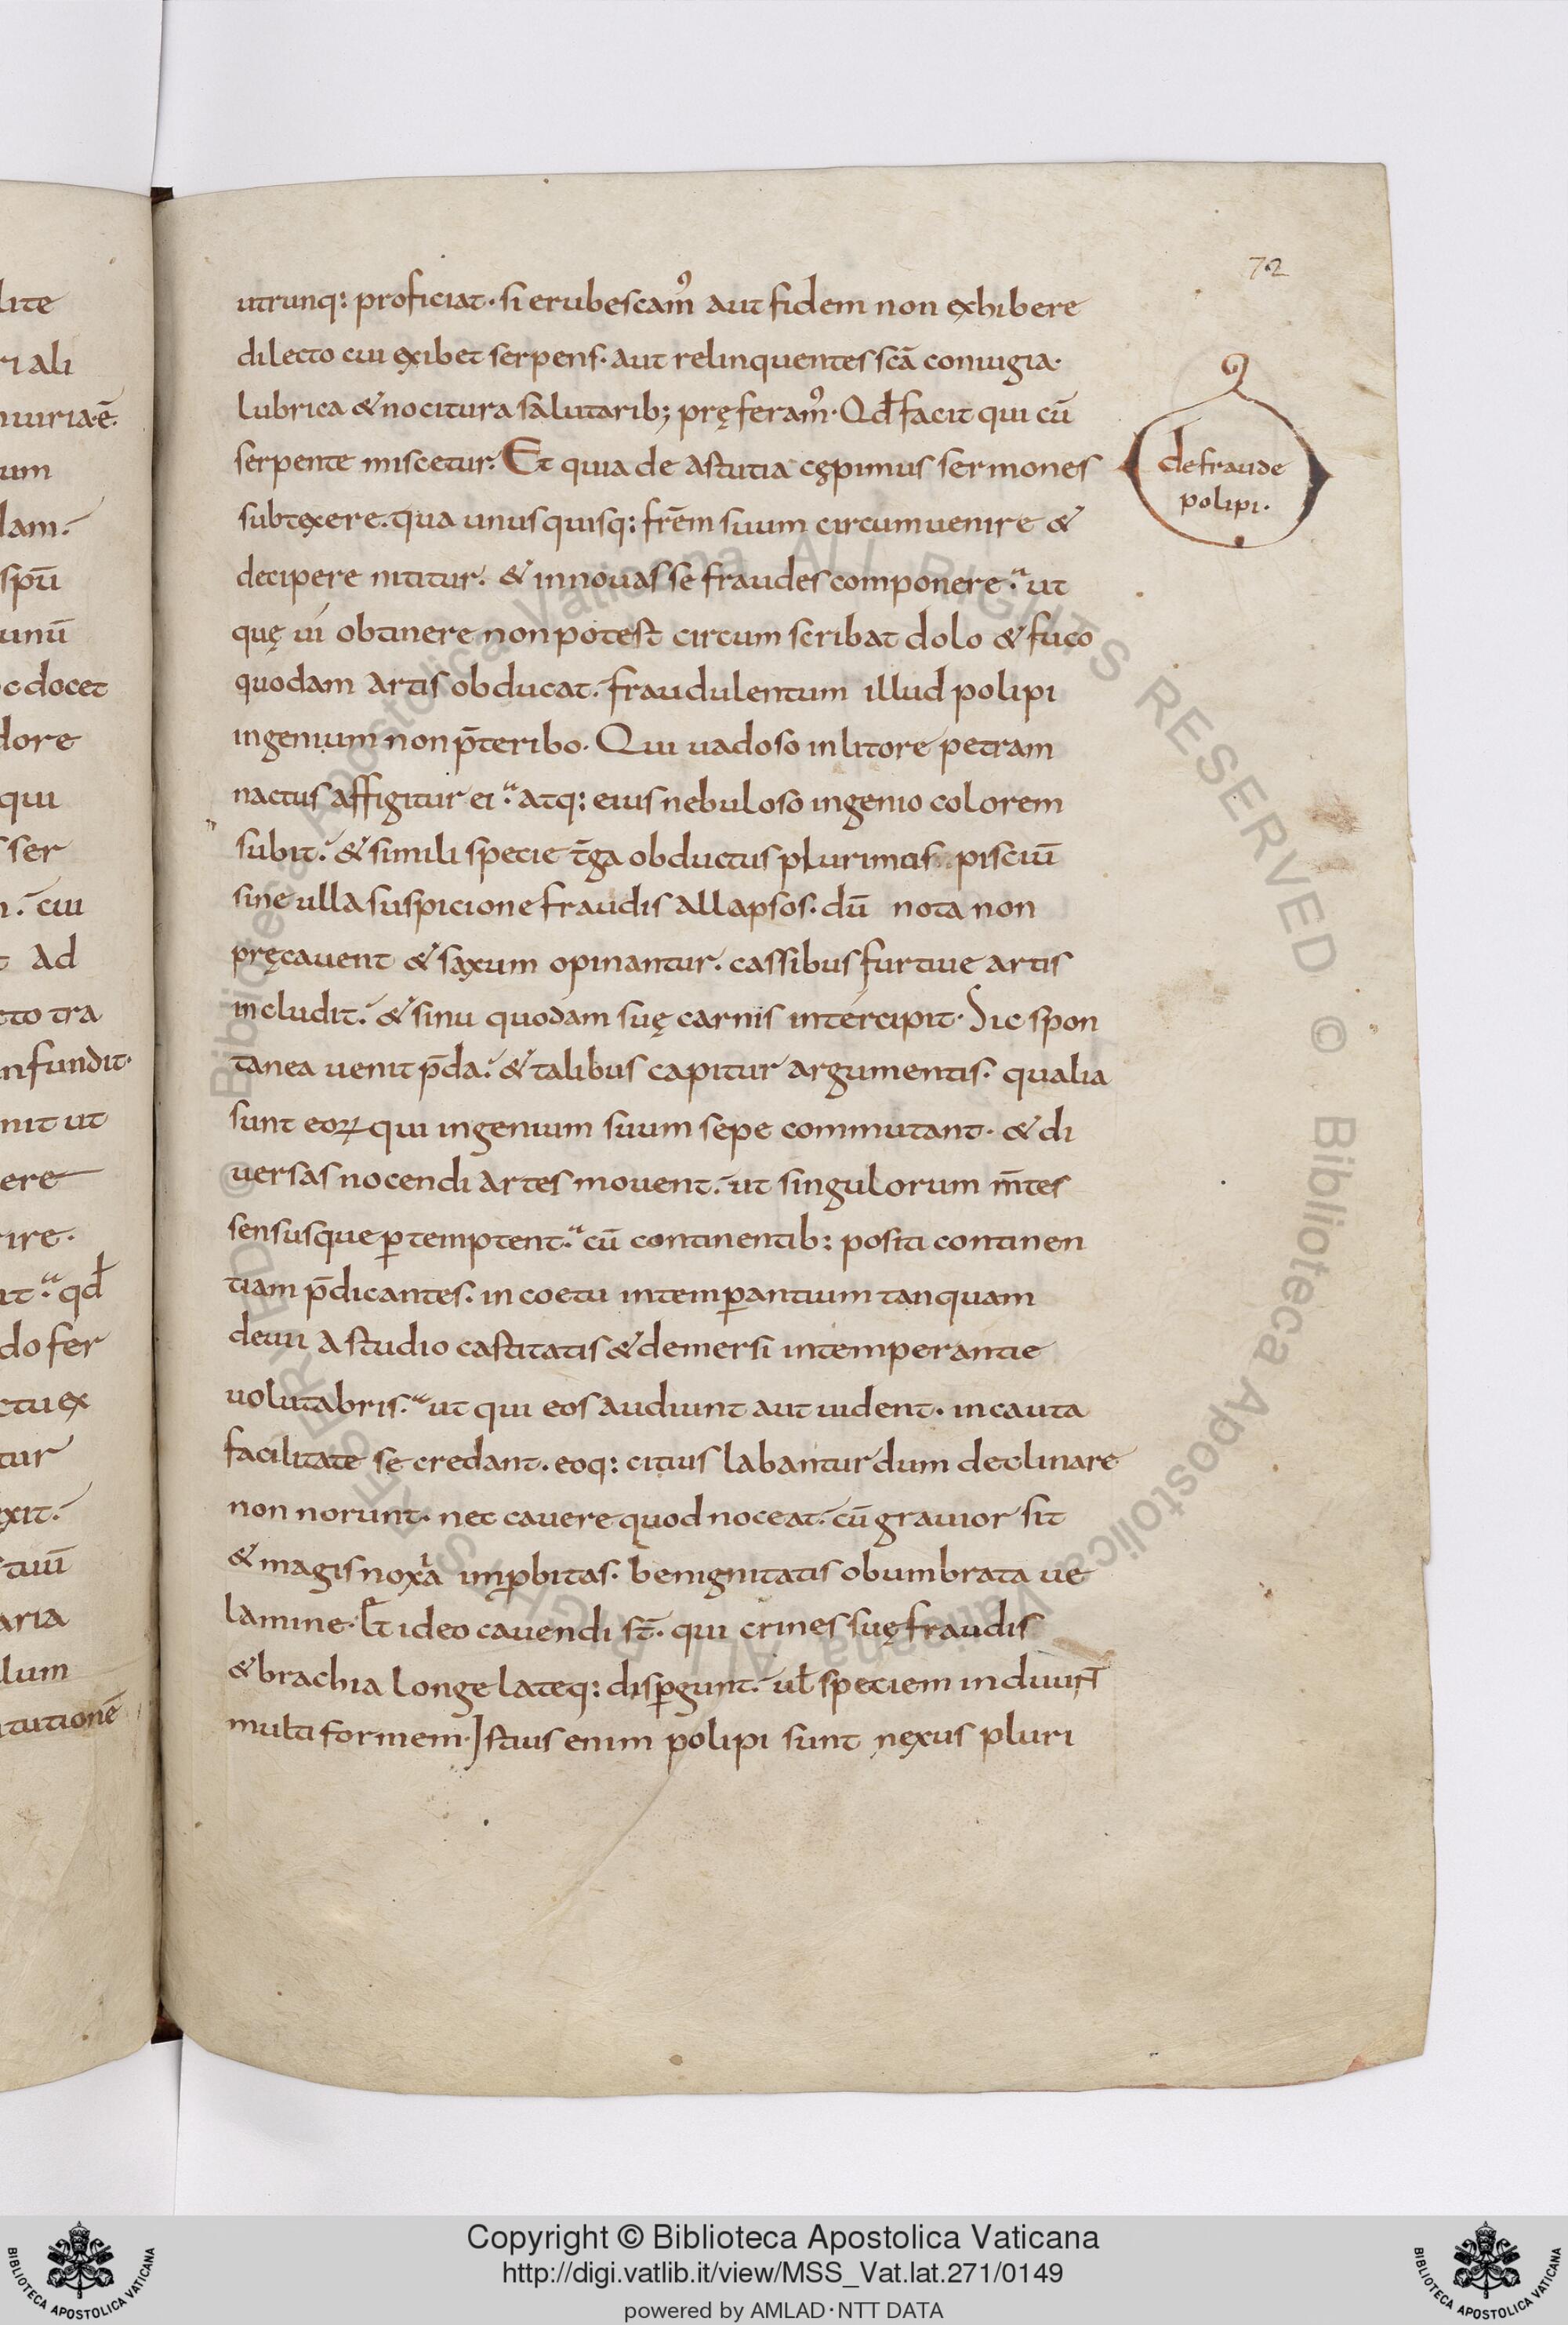 72
utrunq: proficiat. si erubescamꝰ aut fidem non exhibere
dilecto cui exibet serpens. aut relinquentes scā coniugia.
lubrica & nocitura salutarib; pręferamꝰ. Qđ facit qui cū
serpente miscetur. Et quia de astutia cępimus sermones
subtexere. qua unusquisq: frēm suum circumuenire &
decipere nititur. & in nouas se fraudes componere. ut
quę ui obtinere non potest circumscribat dolo & fuco
quodam artis obducat. fraudulentum illud polipi
ingenium non p̄teribo. Qui uadoso in litore petram
nactus affigitur ei. atq: eius nebuloso ingenio colorem
subit. & simili specie t̄ga obductus plurimos pisciū
sine ulla suspicione fraudis allapsos. dū nota non
pręcauent & saxum opinantur. cassibus furtiue artis
includit. & sinu quodam suę carnis intercipit. Sic spon
tanea uenit p̄da. & talibus capitur argumentis. qualia
sunt eoꝝ qui ingenium suum sepe commutant. & di
uersas nocendi artes mouent. ut singulorum m̄tes
sensusque ꝑtemptent. cū continentib: positi continen
tiam p̄dicantes. in coetu intemꝑantium tanquam
deuii a studio castitatis & demersi intemperantie
uolutabris. ut qui eos audiunt aut uident. incauta
facilitate se credant. eoq: citius labantur dum declinare
non norunt. nec cauere quod noceat. cū grauior sit
& magis noxia imꝓbitas. benignitatis obumbrata ue
lamine. Et ideo cauendi st̄. qui crines suę fraudis
& brachia longe lateq: disꝑgunt. ul̄ speciem induunt
multiformem. Istius enim polipi sunt nexus pluri
de fraude
polipi.
lite
ri ali
niuria ē.
um
lam.
spū
unū
c docet
dore
qui
ser
cui
ad
cto tra
nfundit.
nit ut
ere
rire.
it. qđ
do fer
ctu ex
tur
exit.
tiuī
aria
lum
itutionē
© Biblioteca Apostolica Vaticana ALL RIGHTS RESERVED © Biblioteca Apostolica Vaticana ALL RIGHTS RESERVED
Copyright © Biblioteca Apostolica Vaticana
http://digi.vatlib.it/view/MSS_Vat.lat.271/0149
powered by AMLAD·NTT DATA
BIBLIOTECA APOSTOLICA VATICANA
BIBLIOTECA APOSTOLICA VATICANA